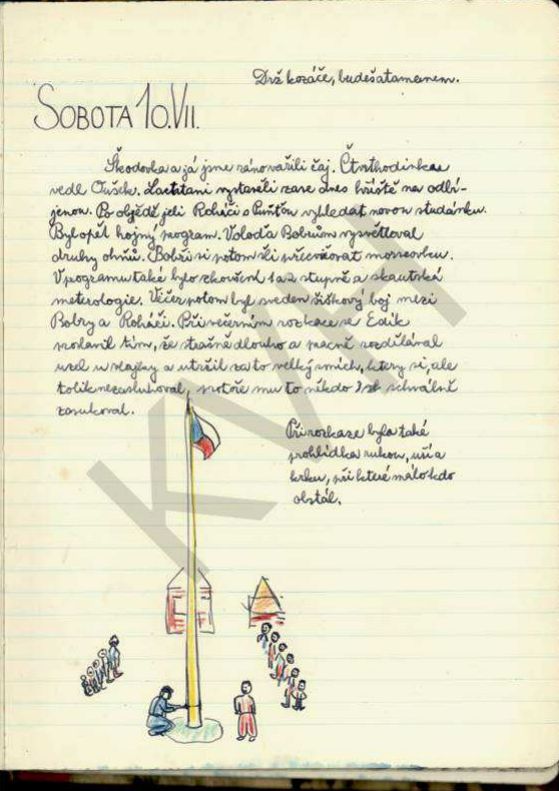 Drž kozáče, budeš atamanem.
SOBOTA 10.VII.
Škodovka a já jsme ráno vařili čaj. Čtvrthodinka
vedl Oušek. Lachtani vystavěli zase dnes hřiště na odbí-
jenou. Po obědě jeli Roháči s Punťou vyhledat novou studánku.
Byl opět hojný program. Voloďa Bobrům vysvětloval
druhy ohňů. Bobři si potom šli přecvičovat morseovku.
V programu také bylo zkoušení 1 a 2 stupně a skautská
meterologie. Večer potom byl sveden šiškový boj mezi
Bobry a Roháči. Při večerním rozkaze se Edik
proslavil tím, že strašně dlouho a pracně rozdělával
uzel u vlajky a utržil za to velký smích, který si, ale
tolik nezasluhoval, protože mu to někdo schválně
zasukoval.
Při rozkaze byla také
prohlídka rukou, uší a
krku, při které málokdo
obstál.
KVH